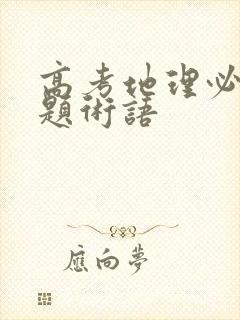 高考地理必
題術語
應向夢